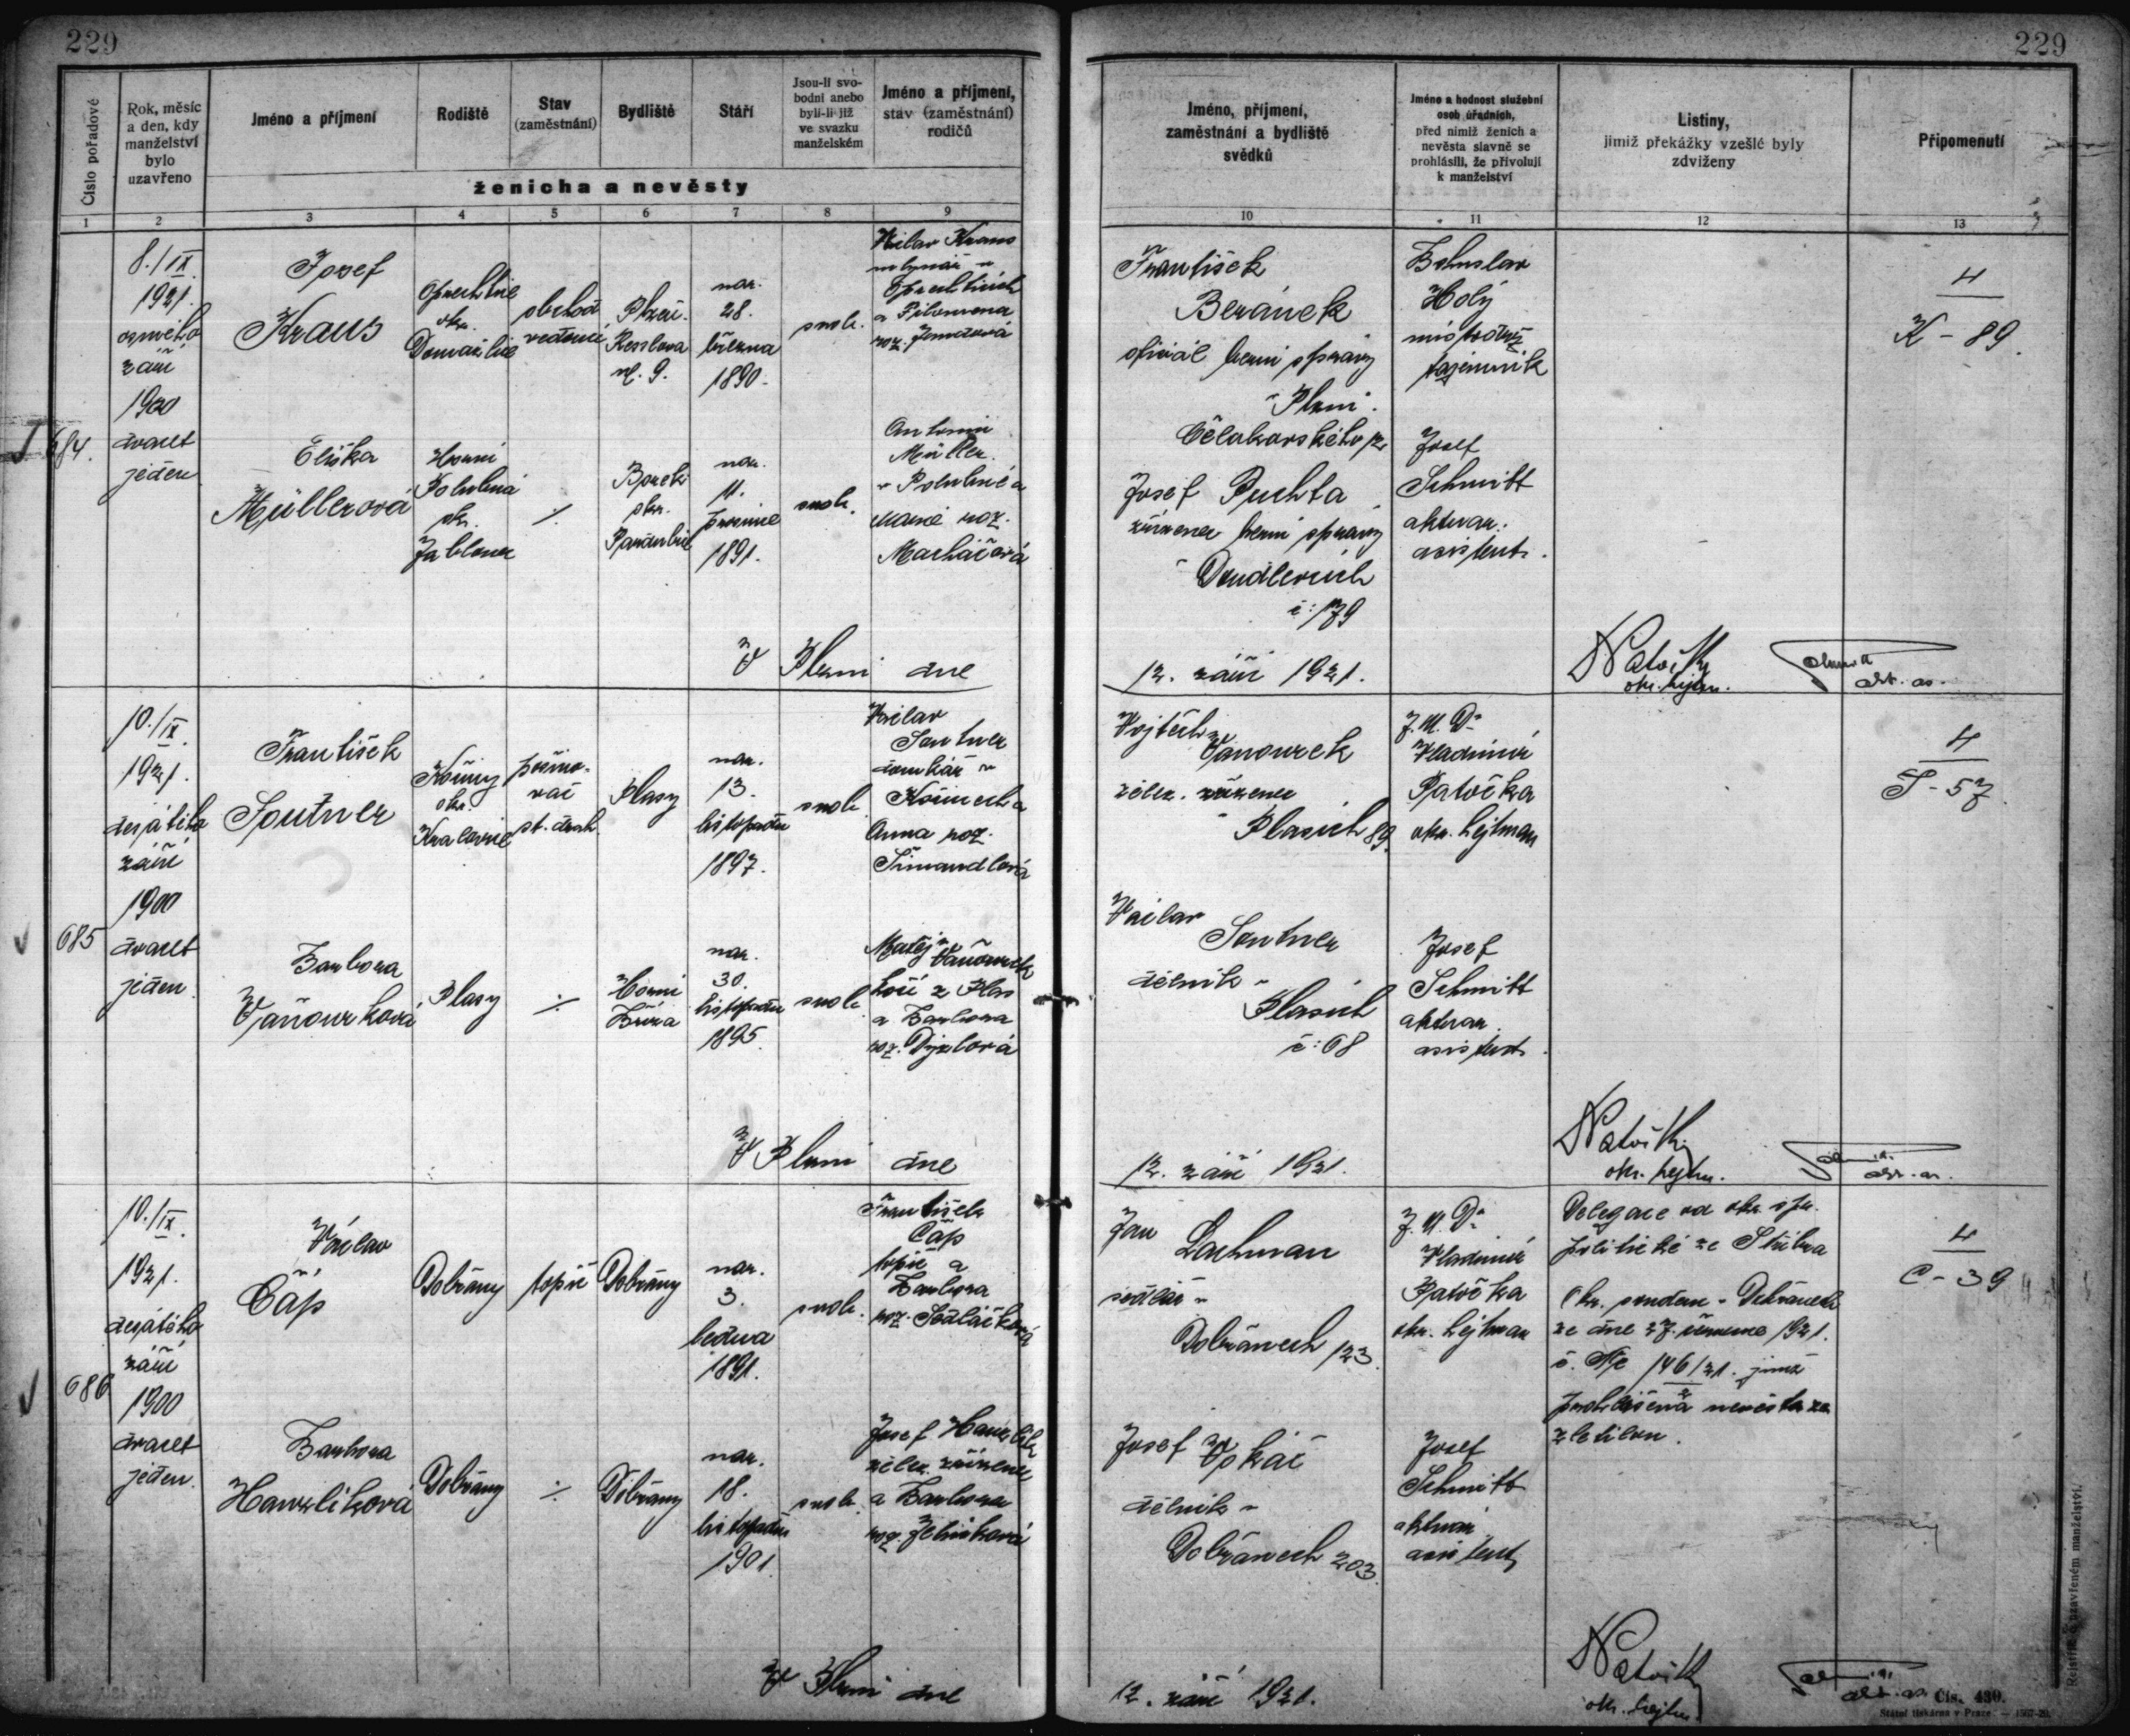 229
229
Číslo pořadové
Rok, měsíc
a den, kdy
manželství
bylo
uzavřeno
Jméno a příjmení
Rodiště
Stav
(zaměstnání)
Bydliště
Stáří
Jsou-li svo-
bodni anebo
byli-li již
ve svazku
manželském
Jméno a příjmení,
stav (zaměstnání)
rodičů
ženicha a nevěsty
Jméno, příjmení,
zaměstnání a bydliště
svědků
Jméno a hodnost služební
osob úřadních,
před nimiž ženich a
nevěsta slavně se
prohlásili, že přivolují
k manželství
Listiny,
jimiž překážky vzešlé byly
zdviženy
Připomenutí
1
2
3
4
5
6
7
8
9
10
11
12
13
684.
8./IX.
1921.
osmého
září
1900
dvacet
jeden
Josef
Kraus
okr.
Domažlice
obchod
vedoucí
Plzeň.
ul. 9.
nar.
28.
března
1890.
svob.
Kraus
František
Beránek
správy
Plzni.
Čelakovského 12
Bohuslav
Holý
tajemník
4
K - 89.
Eliška
Müllerová
Horní
Polubná
okr.
Jablonec
./.
okr.
Pardubice
nar.
11.
prosince
1891.
svob.
Antonín
Müller
Marie roz.
Machačová
Josef Puchta
zřízenec berní správy
Doudlevcích
č: 179
Josef
Schmitt
aktuar.
asistent.
V Plzni dne
12. září 1921.
okr. hejtm.
akt. as.
685
10./IX.
1921.
desátého
září
1900
dvacet
jeden
František
Soutner
okr.
Kralovice
posuno-
vač
st. drah
Plasy
nar.
13.
listopadu
1897.
svob.
Václav
Soutner
domkář v
Anna roz.
Šimandlová
Vojtěch
Vaňourek
želez. zřízenec
Plasích 89.
J. U. Dr
Vladimír
Patočka
okr. hejtman
4
S - 57.
Barbora
Vaňourková
Plasy
./.
Horní
Bříza
nar.
30.
listopadu
1895.
svob.
Matěj Vaňourek
z Plas
a Barbora
roz.
Václav
Soutner
dělník v
Plasích
č: 68
Josef
Schmitt
aktuar.
asistent.
V Plzni dne
12. září 1921.
okr. hejtm.
akt. as.
686
10./IX.
1921.
desátého
září
1900
dvacet
jeden.
Václav
Čáp
Dobřany
topič
Dobřany
nar.
3.
ledna
1891.
svob.
František
Čáp
topič a
Barbora
roz. Sedláčková
Jan
Lachman
sedlář v
Dobřanech 123.
J. U. Dr
Vladimír
Patočka
okr. hejtman
Delegace od okr. spr.
politické ze Stříbra
Okr. soudem v Dobřanech
ze dne 27. června 1921.
č. 146/21. jímž
prohlášena nevěsta za
zletilou.
4
C - 39
Barbora
Hanzlíková
Dobřany
./.
Dobřany
nar.
18.
listopadu
1901.
svob.
Josef Hanzlík
želez. zřízenec
a Barbora
roz.
Josef
dělník v
Dobřanech 203.
Josef
Schmitt
aktuar.
asistent
V Plzni dne
12. září 1921.
okr. hejtm.
akt. as.
Čís. 430.
Státní tiskárna v Praze